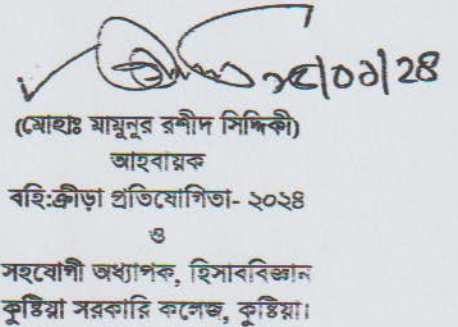 ১৫/০১/২৪
(মোহাঃ মামুনুর রশীদ সিদ্দিকী)
আহবায়ক
বহি:ক্রীড়া প্রতিযোগিতা- ২০২৪
ও
সহযোগী অধ্যাপক, হিসাববিজ্ঞান
কুষ্টিয়া সরকারি কলেজ, কুষ্টিয়া।